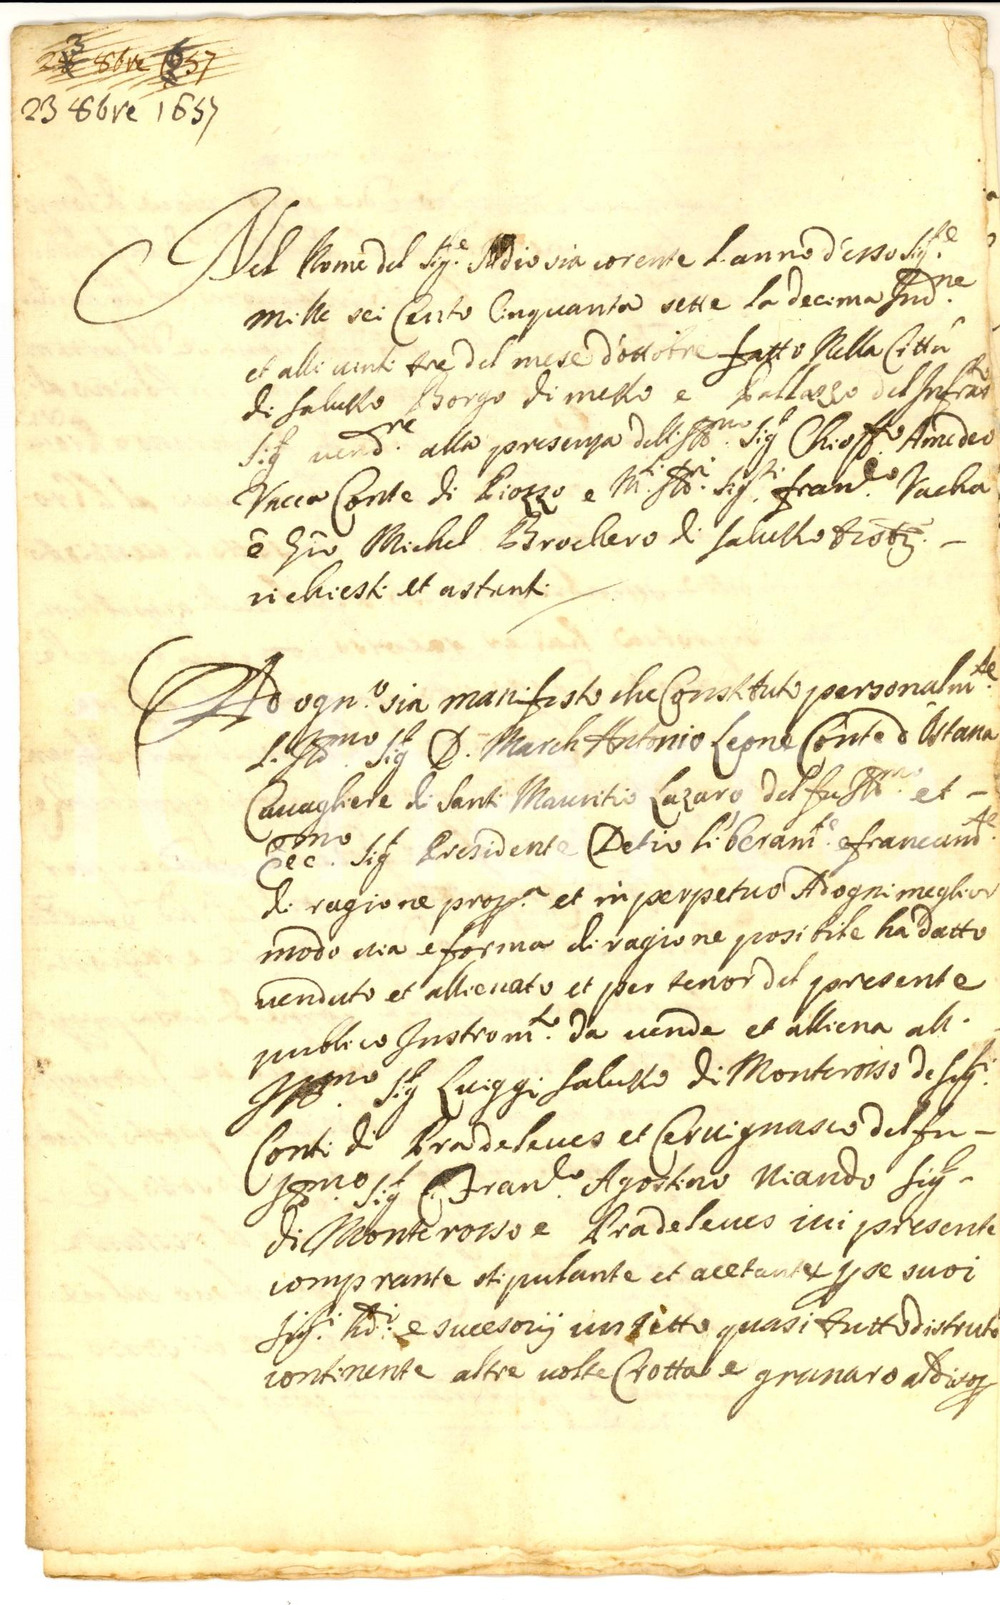 23 8bre 1657
23 8bre 1657
Nel Nome del Sig.re Iddio sia corente l'anno d'esso Sig.re
mille sei Cento Cinquanta sette la decima Ind.ne
et alli vinti tre del mese d'ottobre fatto Nella Città
di Saluzzo Borgo di mezzo e Pallazzo del Infras.to
Sig.r vend.re alla presenza delli Ill.mo Sig.r Amedeo
Vacca Conte di Piozzo e M.ti Ill.ri Sig.ri Fran.co Vacha
e Gio Michel Brochero di Saluzzo
richiesti et astanti
Ad ogn'o sia manifesto che Constituto personalm.te
L'Ill.mo Sig.r D. March Antonio Leone Conte d'Ostana
Cavagliere di Santi Mauritio Lazaro del fu Ill.mo et
Ecc.mo Sig.r Presidente Detio liberam.te e francam.te
di ragione prop.a et in perpetuo Ad ogni meglior
modo via e forma di ragione posibile ha datto
venduto et allienato et per tenor del presente
publico Instrom.to da vende et alliena all
Ill.mo Sig.r Luiggi Saluzzo di Monterosso de Sig.ri
Conti di Pradeleves et Cervignasco del fu
Ill.mo Sig.r C. Fran.co Agostino Niando Sig.r
di Monterosso e Pradeleves ivi presente
comprante stipulante et acetante p se suoi
Sig.ri hd.i e sucesorij un sitto quasi tutto distruto
continente altre volte Crotta e granaro al di sop